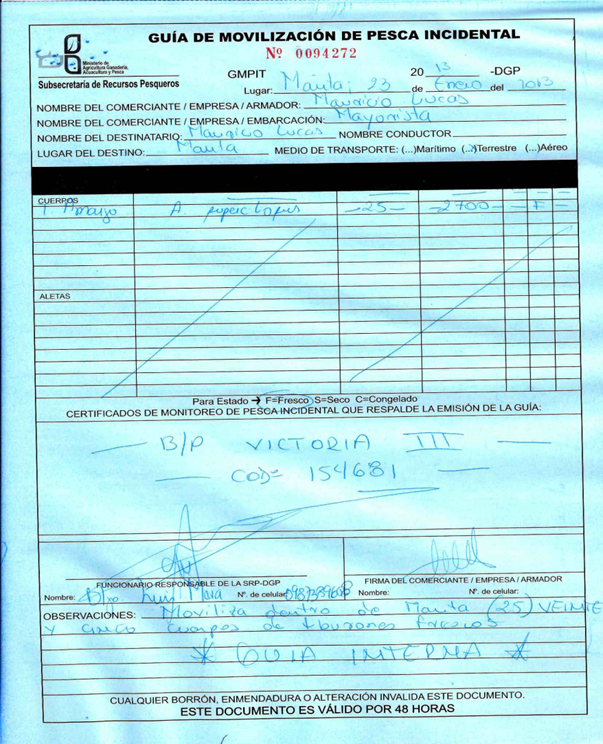 GUÍA DE MOVILIZACIÓN DE PESCA INCIDENTAL
Nº 0094272
Ministerio de
Agricultura Ganadería,
Acuacultura y Pesca
Subsecretaría de Recursos Pesqueros
GMPIT 2013 -DGP
Lugar: Manta, 23 de Enero del 2013
NOMBRE DEL COMERCIANTE / EMPRESA / ARMADOR: Mauricio Lucas
NOMBRE DEL COMERCIANTE / EMPRESA / EMBARCACIÓN: Mayorista
NOMBRE DEL DESTINATARIO: Mauricio Lucas NOMBRE CONDUCTOR
LUGAR DEL DESTINO: Manta MEDIO DE TRANSPORTE: (...)Marítimo (...)Terrestre (...)Aéreo
CUERPOS
T. Amargo A. superciliosus -25- -2700- -F-
ALETAS
Para Estado → F=Fresco S=Seco C=Congelado
CERTIFICADOS DE MONITOREO DE PESCA INCIDENTAL QUE RESPALDE LA EMISIÓN DE LA GUÍA:
B/P VICTORIA III
COD= 154681
FUNCIONARIO RESPONSABLE DE LA SRP-DGP FIRMA DEL COMERCIANTE / EMPRESA / ARMADOR
Nombre: Blgo. Luis Nº. de celular: Nombre: Nº. de celular:
OBSERVACIONES: Moviliza dentro de Manta (25) VEINTE
Y cinco cuerpos de tiburones frescos
* GUIA INTERNA *
CUALQUIER BORRÓN, ENMENDADURA O ALTERACIÓN INVALIDA ESTE DOCUMENTO.
ESTE DOCUMENTO ES VÁLIDO POR 48 HORAS